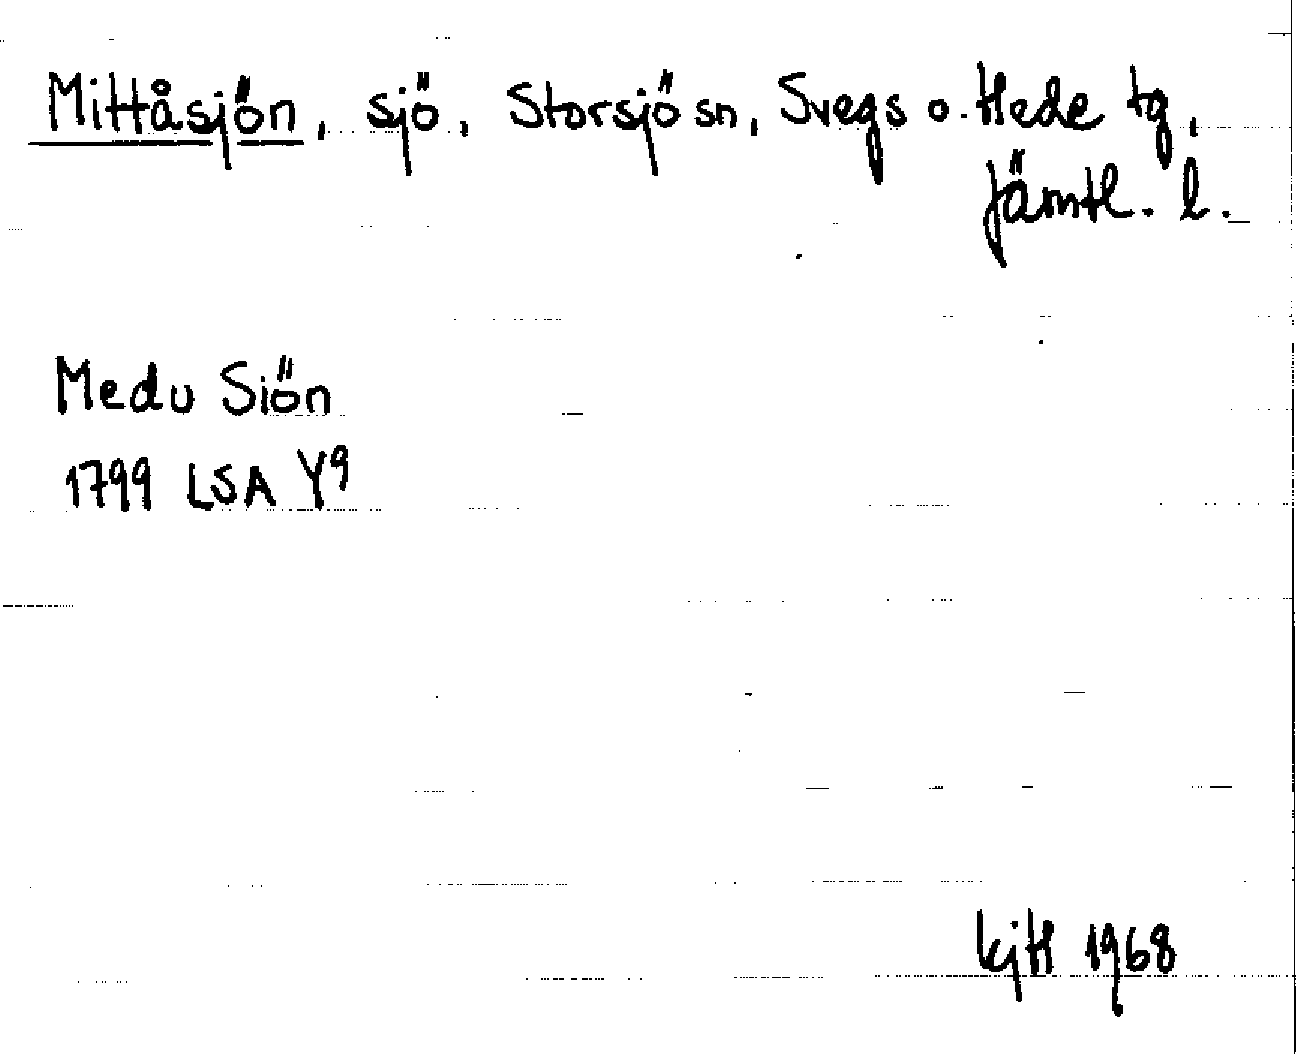 Mittåsjön, sjö, Storsjö sn, Svegs o. Hede tg,
Jämtl. l.
Medu Siön
1799 LSA Y9
1968